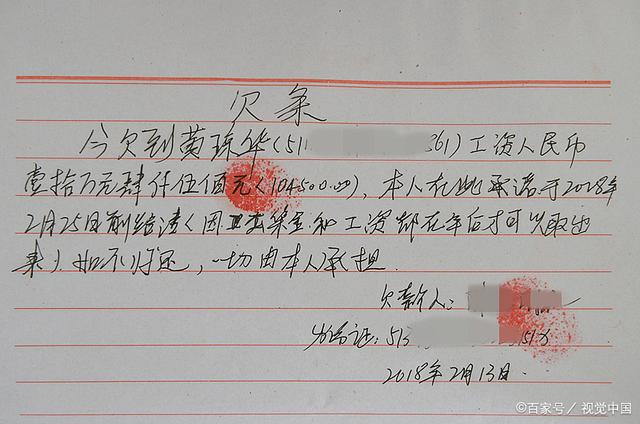 欠条
今欠到黄琼华(511 361)工资人民币
壹拾万元肆仟伍佰元(104500.00),本人在此承诺于2018年
2月25日前结清(因 基金和工资都在年后才可以取出
来).如不归还,一切由本人承担.
欠款人:
身份证:513 51X
2018年2月13日.
©百家号/视觉中国